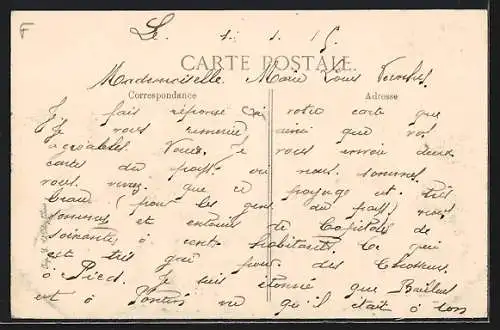 F
Le 4. 1. 15
CARTE POSTALE
Mademoiselle Marie Louis
Correspondance Adresse
Je fais réponse à votre carte que
Je vous remercie ainsi que vos
agréables Je vous envoie deux
cartes du pays où nous sommes
vous verrez que ce paysage est très
beau (pour les gens du pays) nous
sommes et entouré de Capitales de
soixantes à cents habitants. Ce qui
est très que pour des Chasseurs
à Pied. Je suis étonné que
est à vu qu'il était à